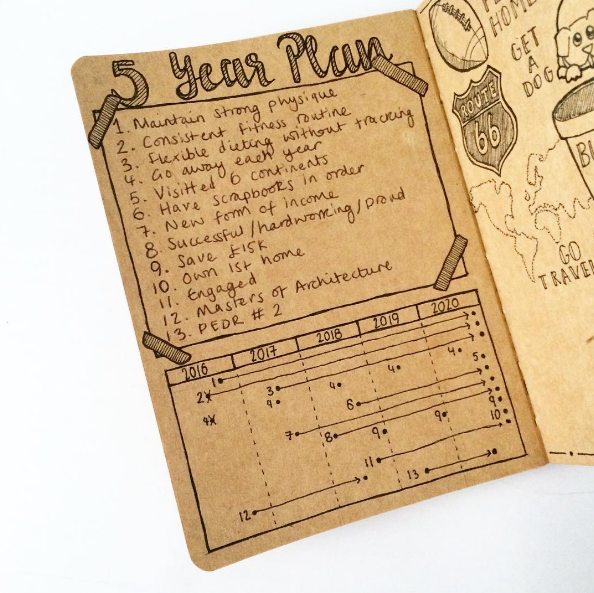 5 Year Plan
1. Maintain strong physique
2. Consistent fitness routine
3. Flexible dieting without tracking
4. Go away each year
5. Visitted 6 continents
6. Have scrapbooks in order
7. New form of income
8. Successful/hardworking/proud
9. Save £15K
10. Own 1st home
11. Engaged
12. Masters of Architecture
13. PEDR # 2
2016 2017 2018 2019 2020
1
2
3 4 4 4 5
4 4
6 9
7 8 9 9 10
11
13
12
HOME
GET
A
DOG
ROUTE
66
BU
GO
TRAVEL